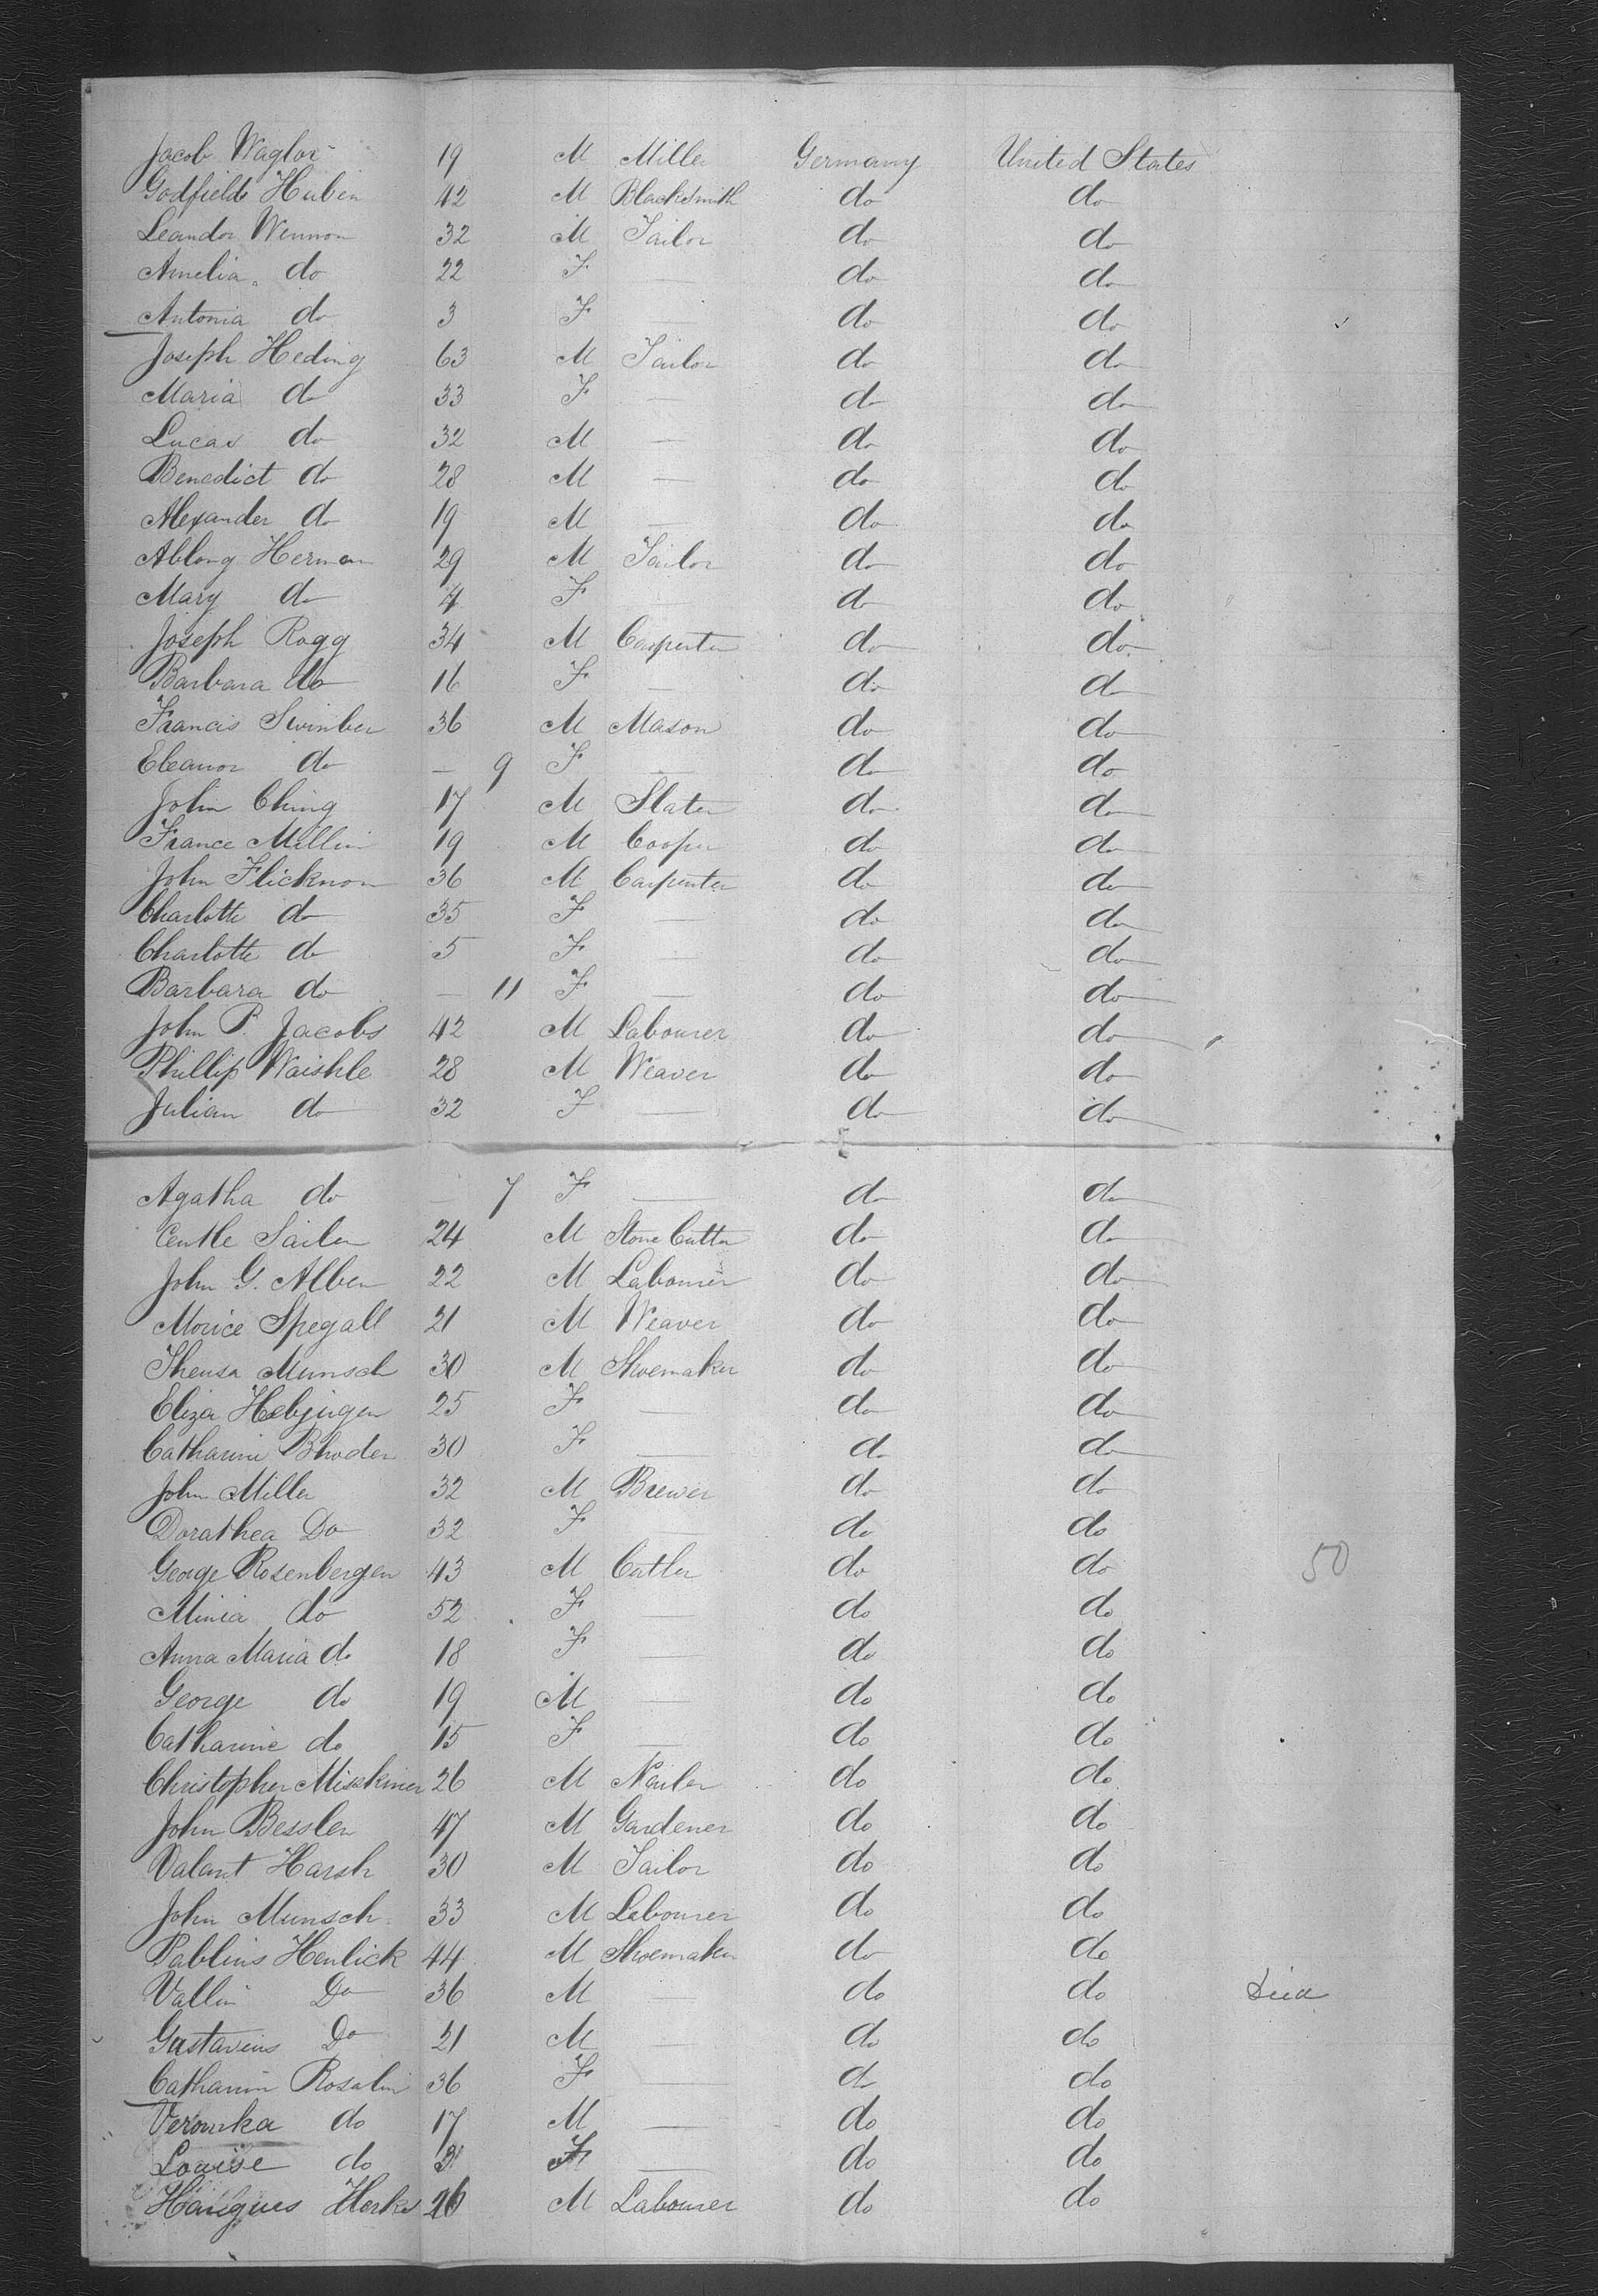 Jacob Waglor 19 M Miller Germany United States
Godfield Huben 42 M Blacksmith do do
Leandor Wennon 32 M Tailor do do
Amelia do 22 F — do do
Antonia do 3 F — do do
Joseph Heding 63 M Tailor do do
Maria do 33 F — do do
Lucas do 32 M — do do
Benedict do 28 M — do do
Alexander do 19 M — do do
Ablong Herman 29 M Tailor do do
Mary do 4 F — do do
Joseph Rogg 34 M Carpenter do do
Barbara do 16 F — do do
Francis Swinber 36 M Mason do do
Eleanor do — 9 F — do do
John Ching 17 M Slater do do
France Millin 19 M Cooper do do
John Flicknor 36 M Carpenter do do
Charlotte do 35 F — do do
Charlotte do 5 F — do do
Barbara do — 11 F — do do
John P. Jacobs 42 M Labourer do do
Phillip Waishle 28 M Weaver do do
Julian do 32 F — do do
Agatha do — 7 F — do do
Sailer 24 M Stone Cutter do do
John G. Alber 22 M Labourer do do
Morice Spegall 21 M Weaver do do
Munsch 30 M Shoemaker do do
Eliza 25 F — do do
Catharine Rhoder 30 F — do do
John Miller 32 M Brewer do do
Dorathea Do 32 F — do do
George Rosenbergen 43 M Cutler do do 50
Minia do 52 F — do do
Anna Maria do 18 F — do do
George do 19 M — do do
Catharine do 15 F — do do
Christopher Miskiner 26 M Nailer do do
John Bessler 47 M Gardener do do
Valant Harsh 30 M Tailor do do
John Munsch 33 M Labourer do do
Pablius Henlick 44 M Shoemaker do do
Vallin Do 36 M — do do Died
Gustavius Do 21 M — do do
Catharin Rosalin 36 F — do do
Veronika do 17 M — do do
Louise do 3 F — do do
Herks 26 M Labourer do do